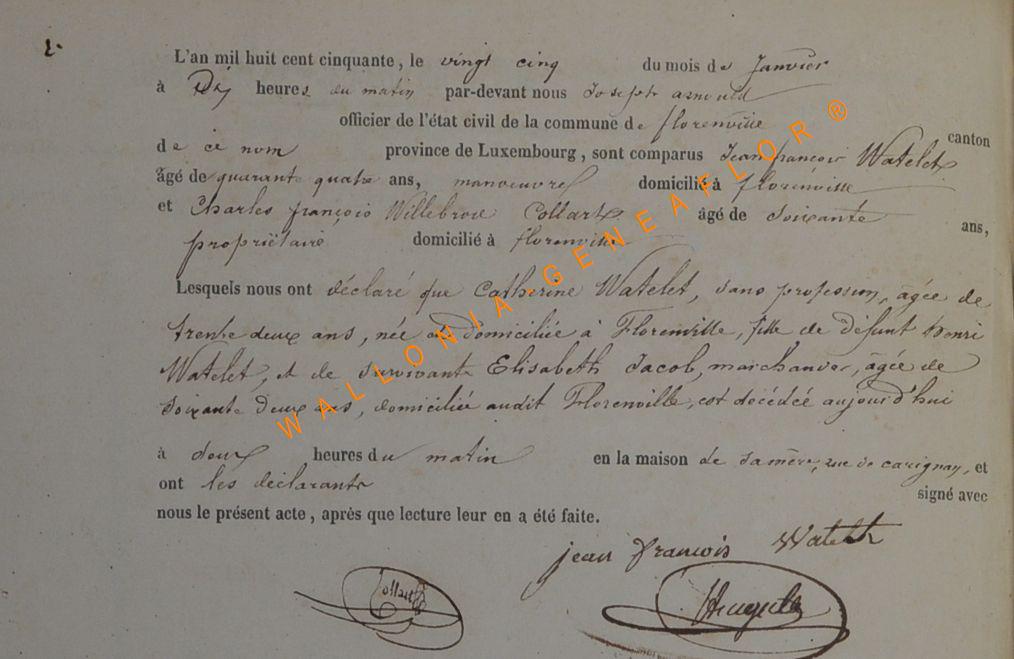 2.
L'an mil huit cent cinquante, le vingt cinq du mois de Janvier
à Dix heures du matin par-devant nous Joseph arnould
officier de l'état civil de la commune de florenville canton
de ce nom province de Luxembourg, sont comparus Jean françois Watelet
âgé de quarante quatre ans, manoeuvre domicilié à florenville
et Charles françois Willebrore Collart âgé de soixante ans,
propriétaire domicilié à florenville
Lesquels nous ont déclaré que Catherine Watelet, sans profession, âgée de
trente deux ans, née et domiciliée à Florenville, fille de défunt henri
Watelet, et de survivante Elisabeth Jacob, marchande, âgée de
soixante deux ans, domiciliée audit Florenville, est décédée aujourd'hui
à deux heures du matin en la maison de sa mère, rue de carignan, et
ont les déclarants signé avec
nous le présent acte, après que lecture leur en a été faite.
jean francois Watelet
Collart
WALLONIA-GENEAFLOR®